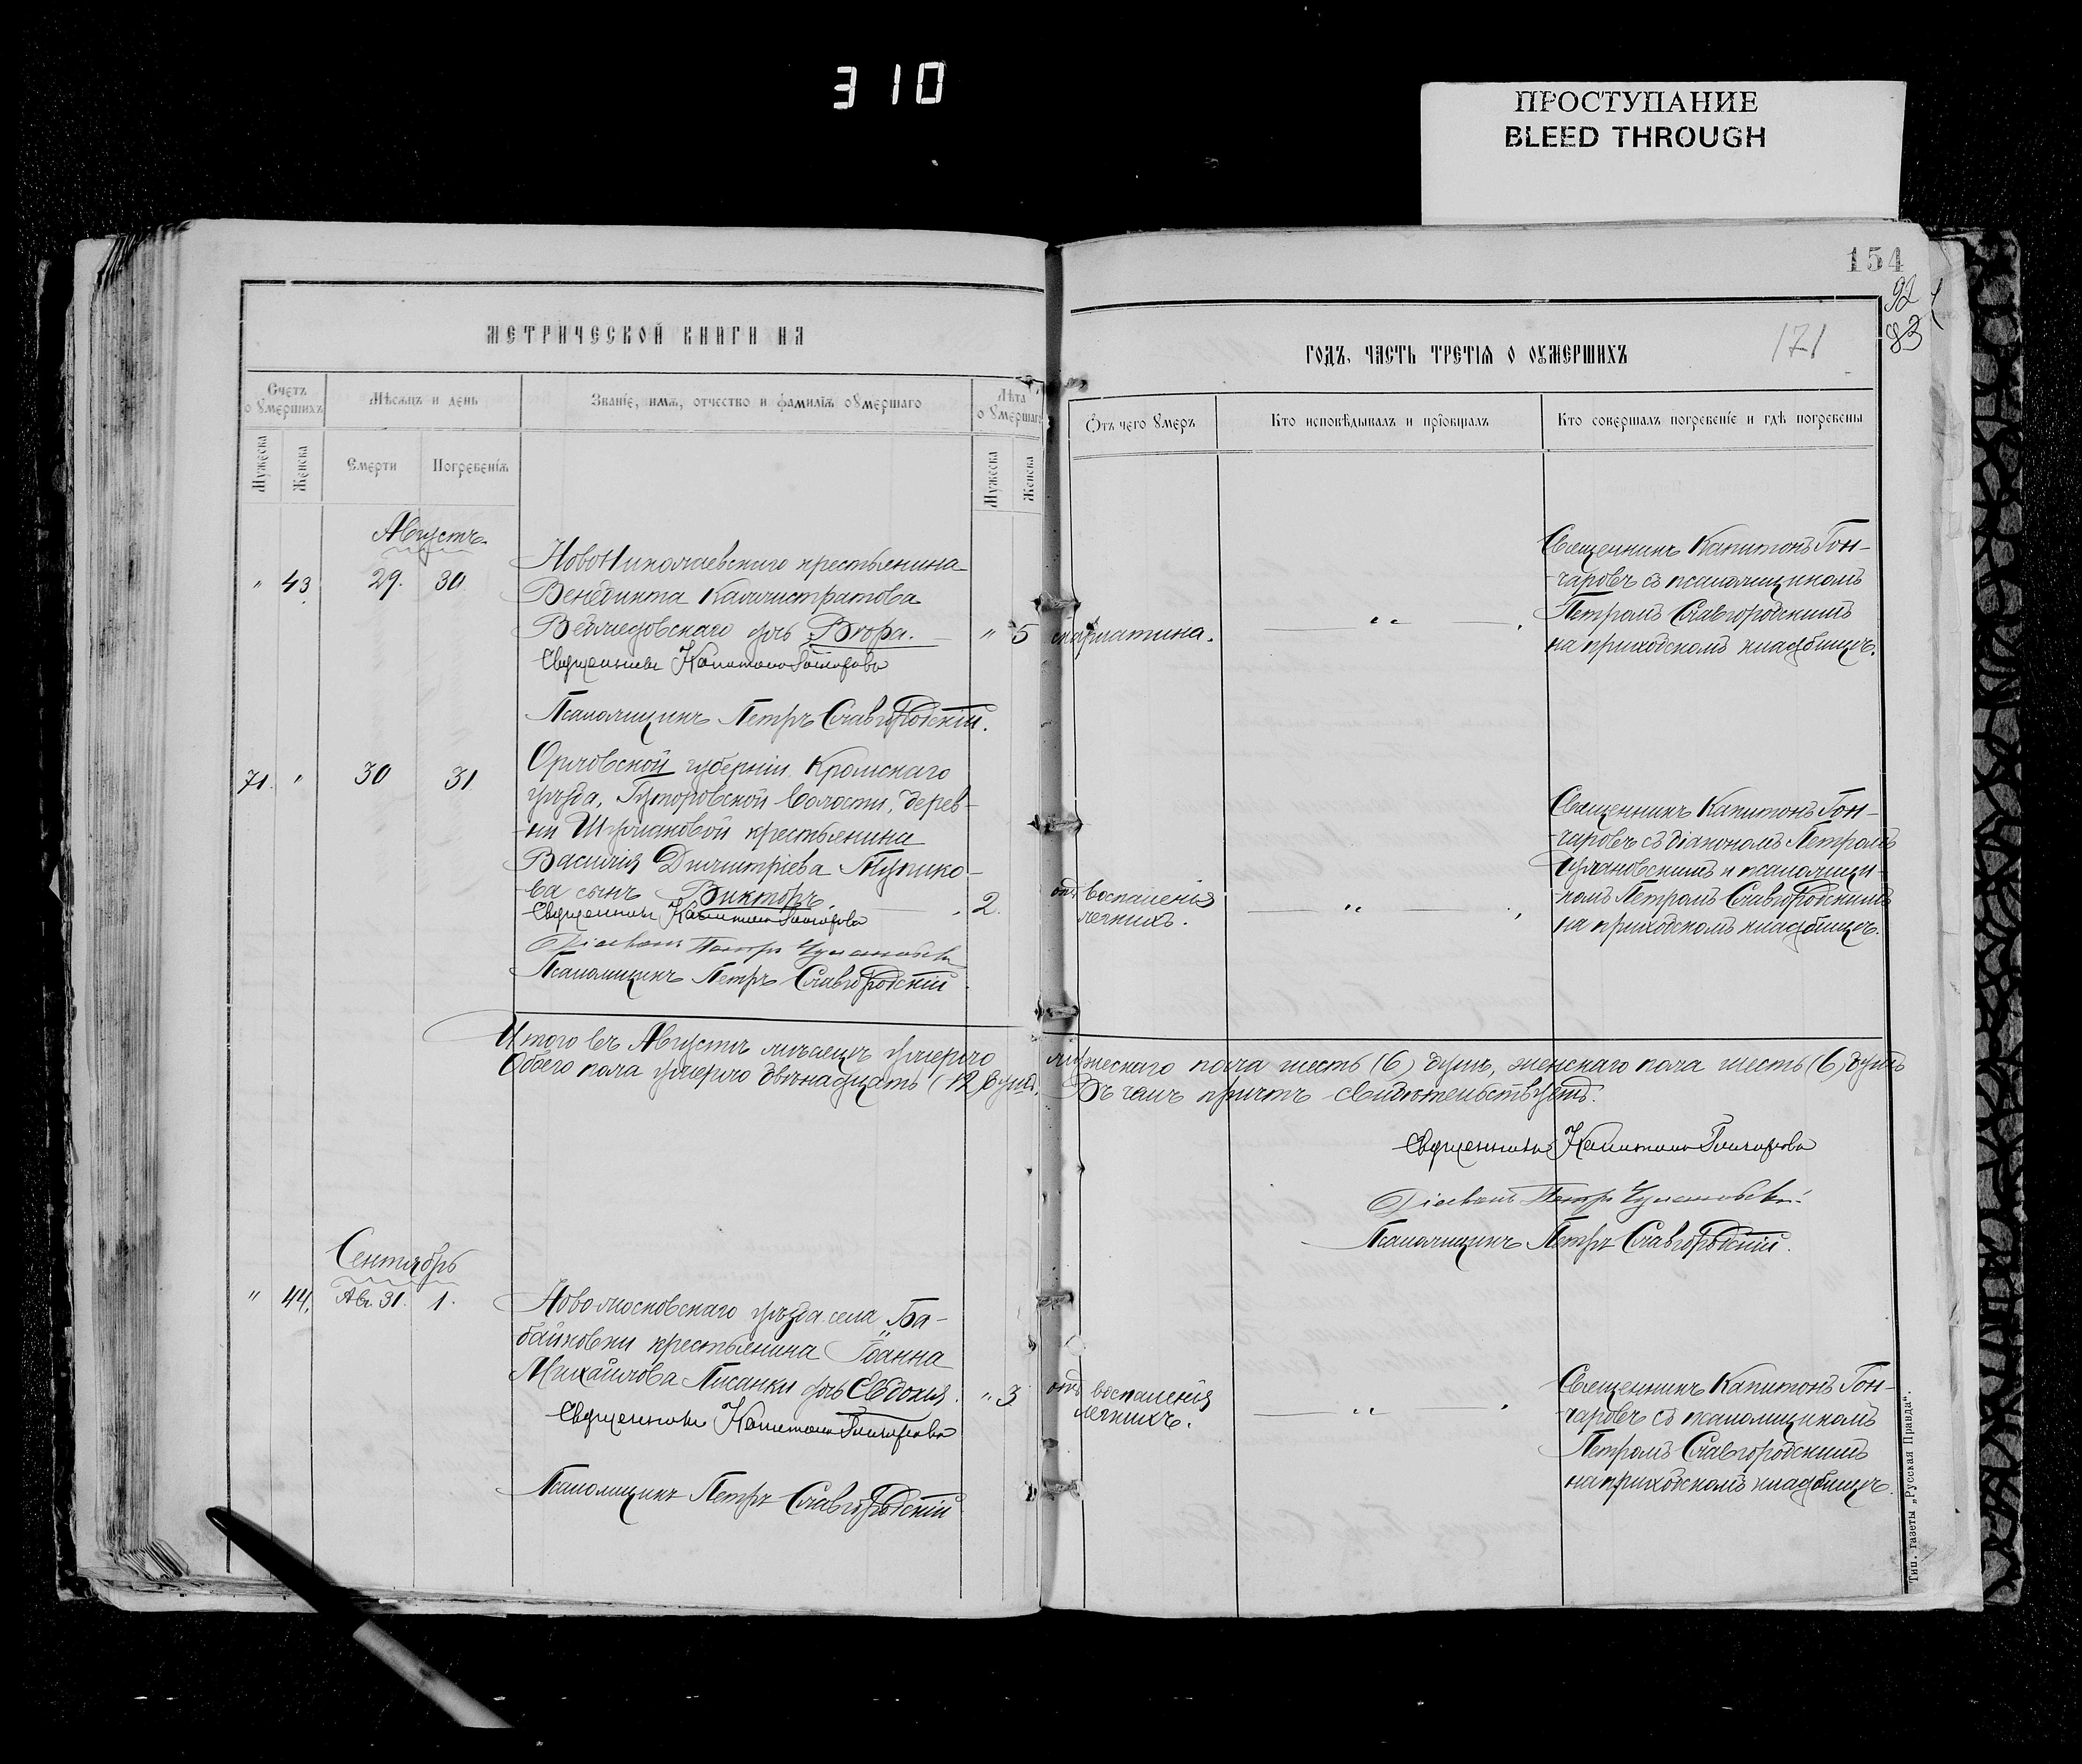 310
ПРОСТУПАНИЕ
BLEED THROUGH
154
92
83
171
МЕТРИЧЕСКОЙ КНИГИ НА
ГОДЪ, ЧАСТЬ ТРЕТІЯ О ОУМЕРШИХЪ
Счетъ оумершихъ
Мѣсяцъ и день
Званіе, имя, отчество и фамилія оумершаго
Лѣта оумершаго
Отъ чего умеръ
Кто исповѣдывалъ и пріобщалъ
Кто совершалъ погребеніе и гдѣ погребены
Мужеска
Женска
Смерти
Погребенія
Мужеска
Женска
Августъ
" 43. 29. 30.
Новониколаевскаго крестьянина
Венедикта Каллистратова
дочь Вѣра. " 5
скарлатина.
"
Священникъ Капитонъ Гон-
чаровъ съ псаломщикомъ
Петромъ Славгородскимъ
на приходскомъ кладбищѣ.
Священникъ Капитонъ Гончаровъ
Псаломщикъ Петръ Славгородскій.
71. " 30 31
Орловской губерніи Кромскаго
уѣзда, Гуторовской волости, дерев-
ни крестьянина
Василія Димитріева Тупико-
ва сынъ Викторъ. 2.
отъ воспаленія
легкихъ.
"
Священникъ Капитонъ Гон-
чаровъ съ діакономъ Петромъ
и псаломщи-
комъ Петромъ Славгородскимъ
на приходскомъ кладбищѣ.
Священникъ Капитонъ Гончаровъ
Діаконъ Петръ
Псаломщикъ Петръ Славгородскій
Итого въ Августѣ мѣсяцѣ умерло мужескаго пола шесть (6) душъ, женскаго пола шесть (6) душъ
Обоего пола умерло двѣнадцать (12) душъ. Въ чемъ причтъ свидѣтельствуетъ.
Священникъ Капитонъ Гончаровъ
Діаконъ Петръ
Псаломщикъ Петръ Славгородскій.
Сентябрь
" 44. Авг. 31. 1.
Новомосковскаго уѣзда села Ба-
байковки крестьянина Іоанна
Михайлова Писанки дочь Евдокія. " 3
отъ воспаленія
легкихъ.
"
Священникъ Капитонъ Гон-
чаровъ съ псаломщикомъ
Петромъ Славгородскимъ
на приходскомъ кладбищѣ.
Священникъ Капитонъ Гончаровъ
Псаломщикъ Петръ Славгородскій
Тип. газеты „Русская Правда".